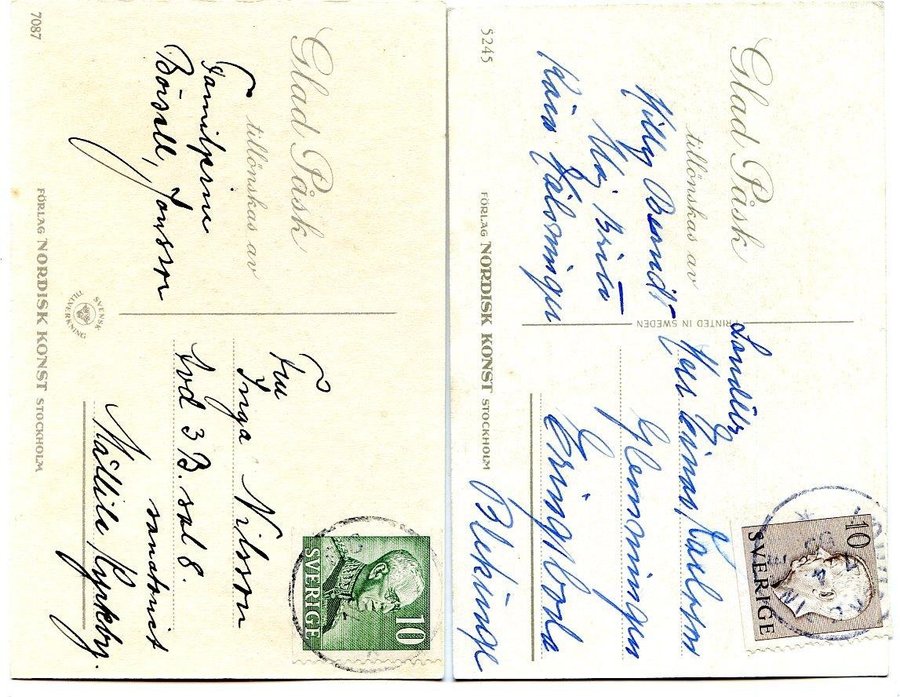 7087
Glad Påsk
tillönskas av
Familjerna
Börsell, Jonsson
FÖRLAG NORDISK KONST STOCKHOLM
SVENSK
TILLVERKNING
Fru
Inga Nilsson
Avd 3 B. sal 8.
sanatoriet
Målilla, Kyrkby.
SVERIGE
10
5245
Glad Påsk
tillönskas av
Willy Berndt
Maj Britt
Karin
FÖRLAG NORDISK KONST STOCKHOLM
PRINTED IN SWEDEN
Herr Einar Karlsson
Eringsboda
Blekinge
10
SVERIGE